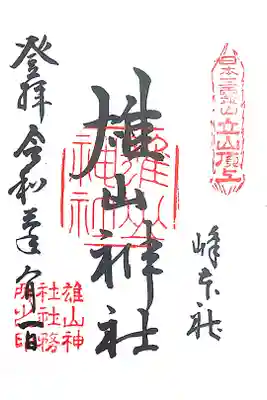 日本三霊山立山頂上
峰本社
雄山神社
雄山神社
登拝令和三年八月一日
雄山神
社社務
所之印